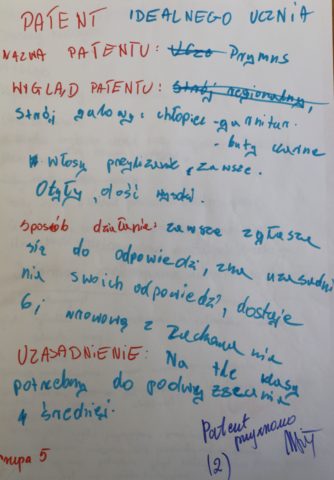 PATENT IDEALNEGO UCZNIA
NAZWA PATENTU: Uczo Prymus
WYGLĄD PATENTU: Strój regionalny,
Strój galowy: chłopiec - garnitur.
- buty czarne
włosy przylizane, zawsze.
Otyły, dość wysoki.
sposób działania: zawsze zgłasza
się do odpowiedzi, zna uzasadni
nia swoich odpowiedzi, dostaje
6, wzorowy z zachowania
UZASADNIENIE: Na tle klasy
potrzebny do podwyższenia
średniej.
Patent
przyznano
(2)
rupa 5